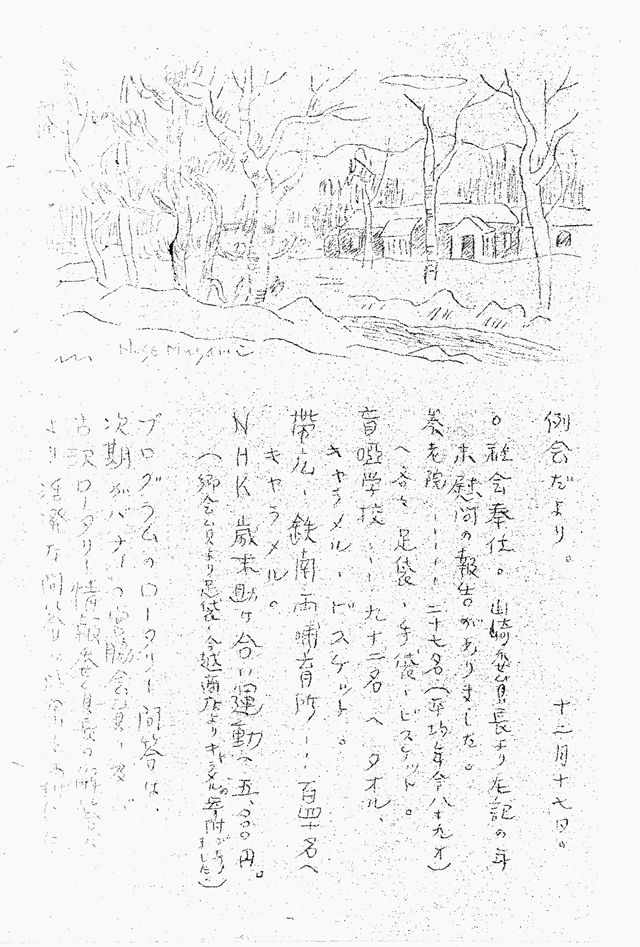 例会だより。
十二月十七日。
○社会奉仕。山崎委員長より左記の年
末慰問の報告がありました。
養老院………二十七名(平均年令八十九才)
へ各々足袋、手袋、ビスケット。
盲唖学校……九十二名へタオル、
キャラメル、ビスケット。
帯広、鉄南両哺育所……百四十名へ
キャラメル。
NHK歳末助け合い運動へ五,〇〇〇円。
(郷会員より足袋、今越商店よりキャラメルの寄附がありました。)
プログラムのロータリー問答は、
次期ガバナーの 会員
古沢ロータリー情報委員長の解答に
より活発な問答